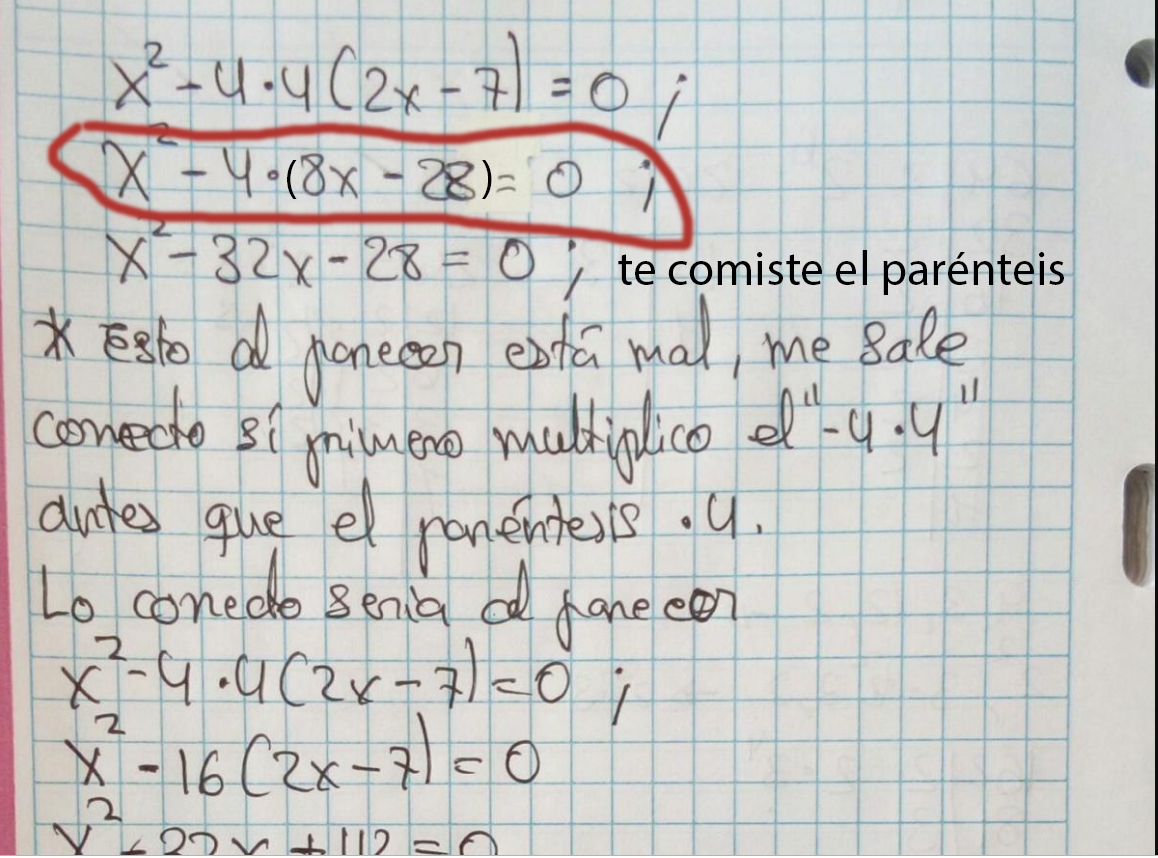 x² - 4·4(2x - 7) = 0 ;
x² - 4·(8x - 28) = 0 ;
x² - 32x - 28 = 0 ;
te comiste el parénteis
* Esto al parecer está mal, me sale
correcto sí primero multiplico el "-4·4"
antes que el paréntesis ·4.
Lo correcto seria al parecer
x² - 4·4(2x - 7) = 0 ;
x² - 16(2x - 7) = 0
x² - 32x + 112 = 0